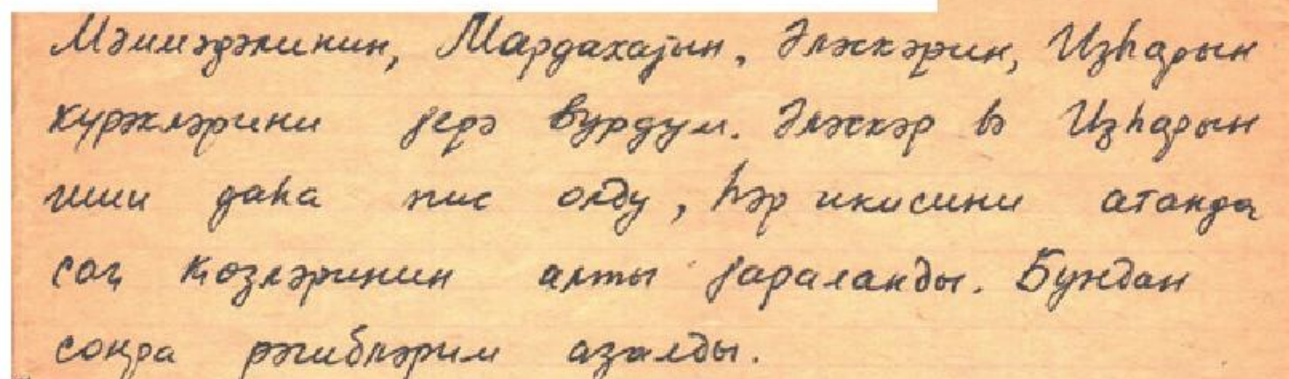 Мәммәдәлинин, Мардахајын, Әләскәрин, Изһарын
күрәкләрини јерә вурдум. Әләскәр вә Изһарын
иши даһа пис олду, һәр икисини атанда
сағ ҝөзләринин алты јараланды. Бундан
соңра рәгибләрим азалды.